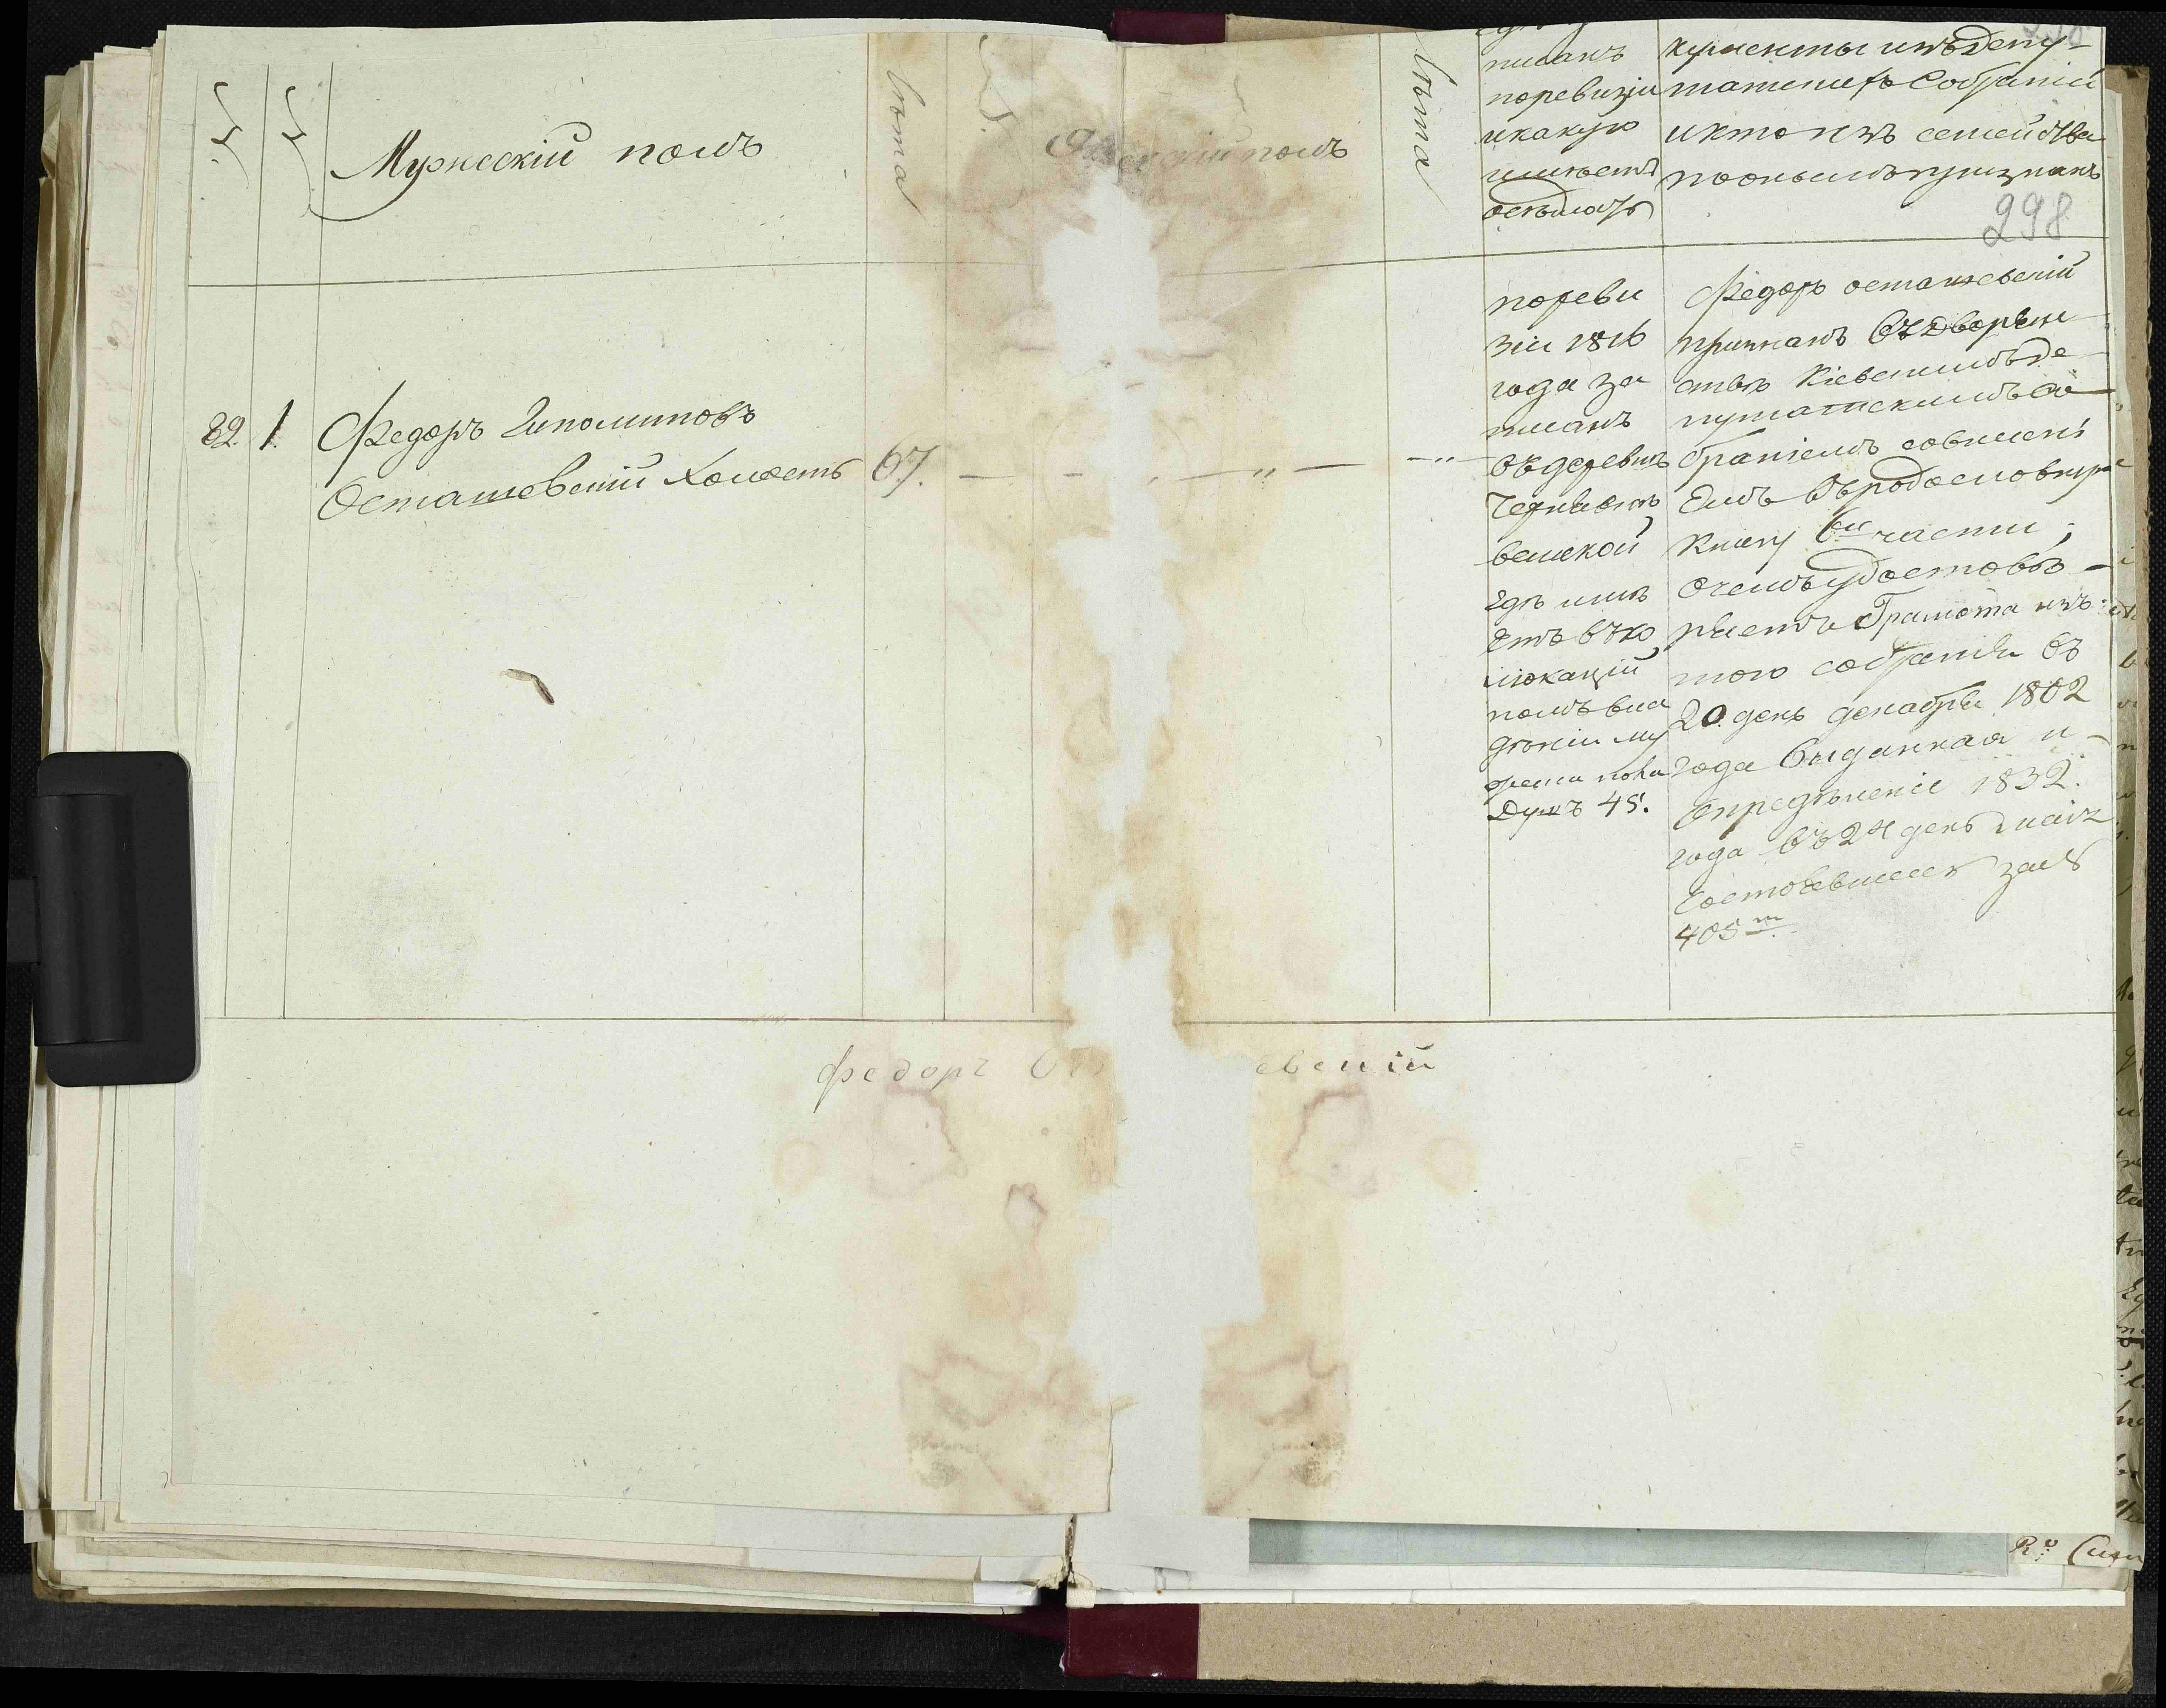 Мужескій полъ
Лѣта
Женскій полъ
Лѣта
писанъ
поревизіи
икакую
имѣетъ
осѣдлость
кументы изъ депу-
татскихъ Собраній
икто изъ семейства
поонымъ признанъ
298
82. 1. Федоръ Гиполитовъ
Осташевскій холостъ 67. — - — „ — — „ —
пореви
зіи 1816
года за
писанъ
въ деревнѣ
великой
гдѣ имѣ
етъ въ ко
локаціи
помъ вла
дѣніи му
жеска пола
Душъ 45.
Федоръ осташевскій
признанъ въ Дворян
ствѣ Кіевскимъ де-
путатскимъ Со-
браніемъ совнесені
Емъ въ родословную
Книгу 6й части,
очемъ удостовѣ-
ряетъ Грамота изъ
того собранія въ
20. день декабря 1802
года выданная и
опредѣленіе 1832.
года въ 24 день маія
состоявшееся за №
405м
федоръ Ос евскій